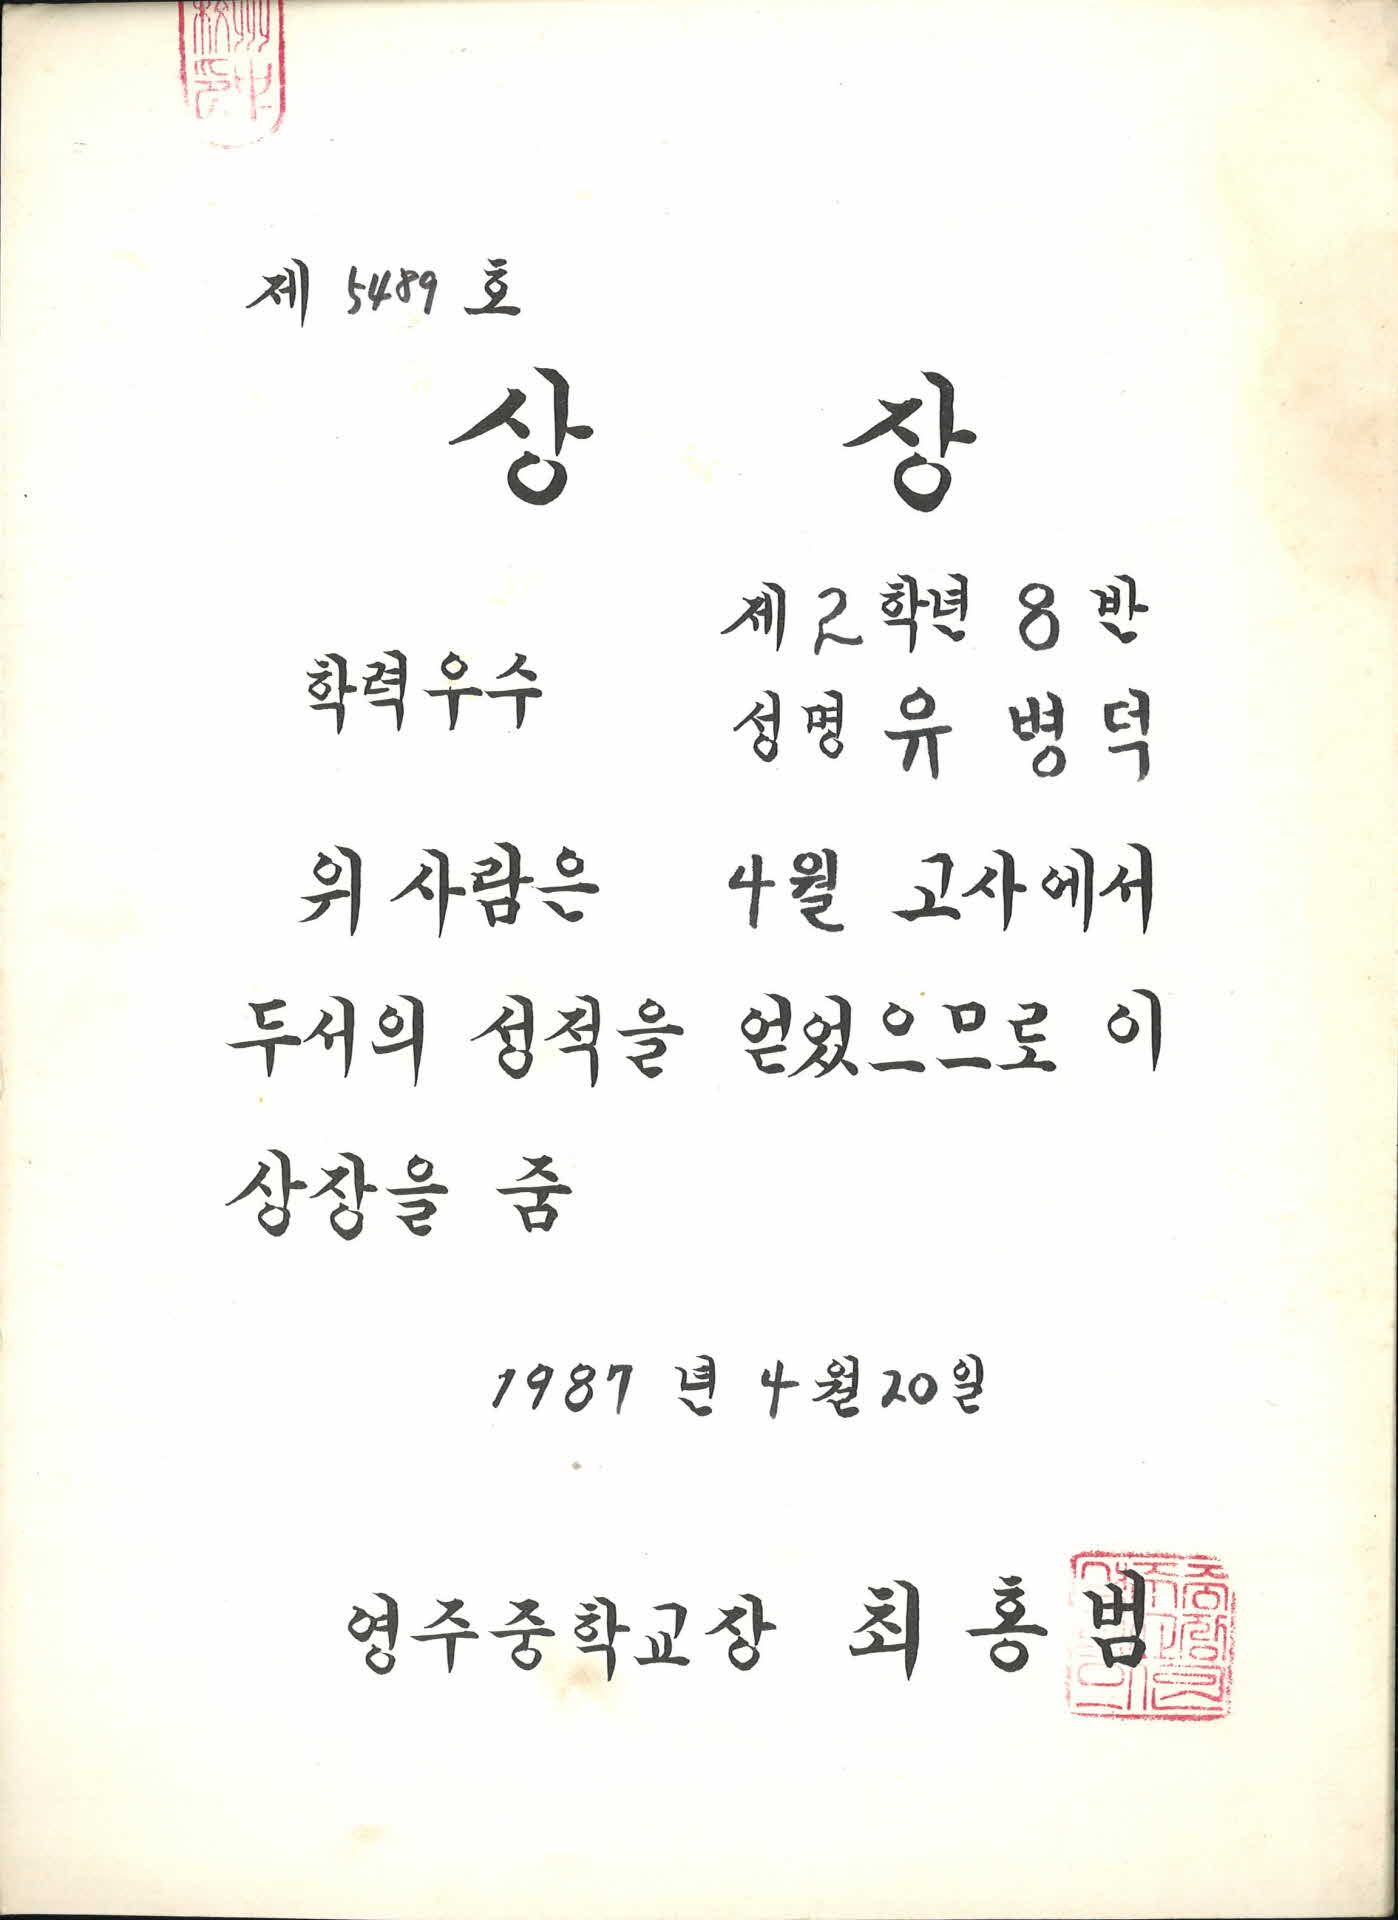 제 5489 호
상 장
제 2 학년 8 반
학력우수
성명 유 병 덕
위 사람은 4월 고사에서
두서의 성적을 얻었으므로 이
상장을 줌
1987 년 4 월 20 일
영주중학교장 최 홍 범